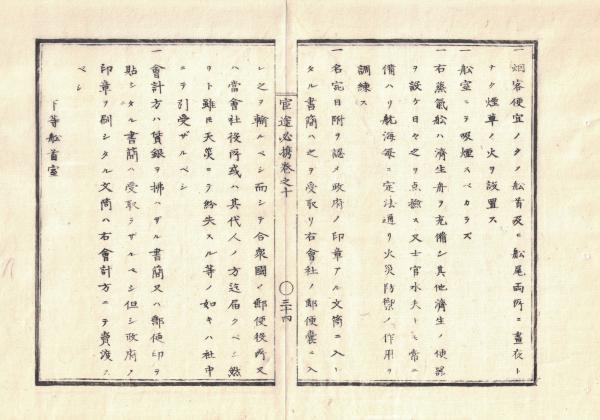 一 烟客便宜ノタメ舩首及ヒ舩尾両所ニ晝夜ト
ナク煙草ノ火ヲ設置ス
一 舩室ニテ吸煙スベカラズ
一 右蒸氣舩ハ濟生舟ヲ充備シ其他濟生ノ使器
ヲ設ケ日々之ヲ点撿ス又士官水夫トモ常ニ
備ハリ航海毎ニ定法通リ火災防禦ノ作用ヲ
調練ス
一 名宛日附ヲ認メ政府ノ印章アル文筒ニ入レ
タル書簡ハ之ヲ受取リ右會社ノ郵便嚢ニ入
官途必携巻之十
〇三十四
レ之ヲ輸ルベシ而シテ合衆國ノ郵便役所又
ハ當會社役所或ハ其代人ノ方迄届クベシ然
ヲト雖𪜈天災ニテ紛失スル等ノ如キハ社中
ニテ引受ザルベシ
一 會計方ハ賃銀ヲ拂ハザル書簡又ハ郵便印ヲ
貼シタル書簡ハ受取ラザルベシ但シ政府ノ
印章ヲ刷シタル文筒ハ右會計方ニテ賣渡ス
ベシ
下等舩首室